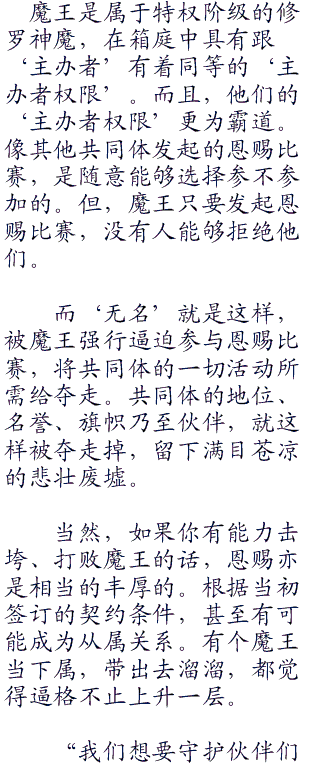 魔王是属于特权阶级的修
罗神魔，在箱庭中具有跟
‘主办者’有着同等的‘主
办者权限’。而且，他们的
‘主办者权限’更为霸道。
像其他共同体发起的恩赐比
赛，是随意能够选择参不参
加的。但，魔王只要发起恩
赐比赛，没有人能够拒绝他
们。
而‘无名’就是这样，
被魔王强行逼迫参与恩赐比
赛，将共同体的一切活动所
需给夺走。共同体的地位、
名誉、旗帜乃至伙伴，就这
样被夺走掉，留下满目苍凉
的悲壮废墟。
当然，如果你有能力击
垮、打败魔王的话，恩赐亦
是相当的丰厚的。根据当初
签订的契约条件，甚至有可
能成为从属关系。有个魔王
当下属，带出去溜溜，都觉
得逼格不止上升一层。
“我们想要守护伙伴们